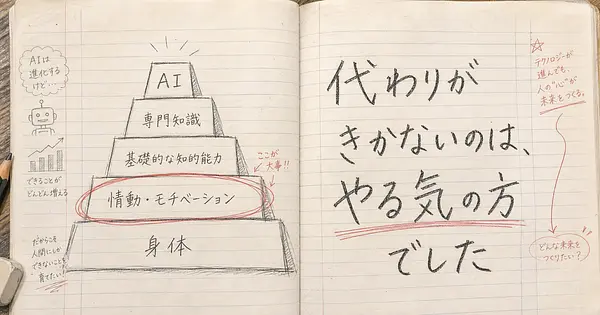 AIは
進化する
けど…
できることが
どんどん増える
だからこそ
人間にしか
できないことを
育てたい!
AI
専門知識
基礎的な知的能力
情動・モチベーション
身体
ここが
大事!!
代わりが
きかないのは、
やる気の方
でした
テクノロジーが
進んでも、
人の“心”が
未来をつくる。
どんな未来を
つくりたい?